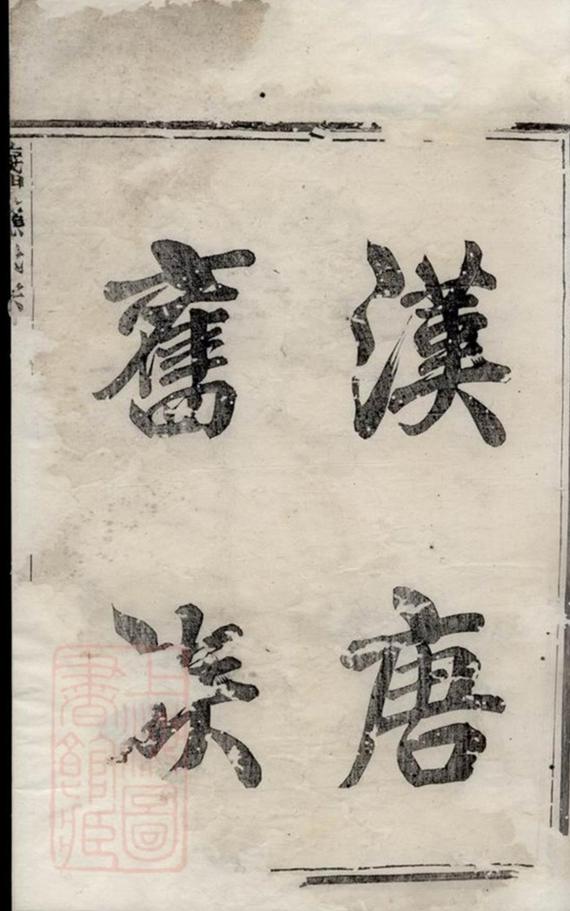 漢唐
舊族
上海圖
書館藏